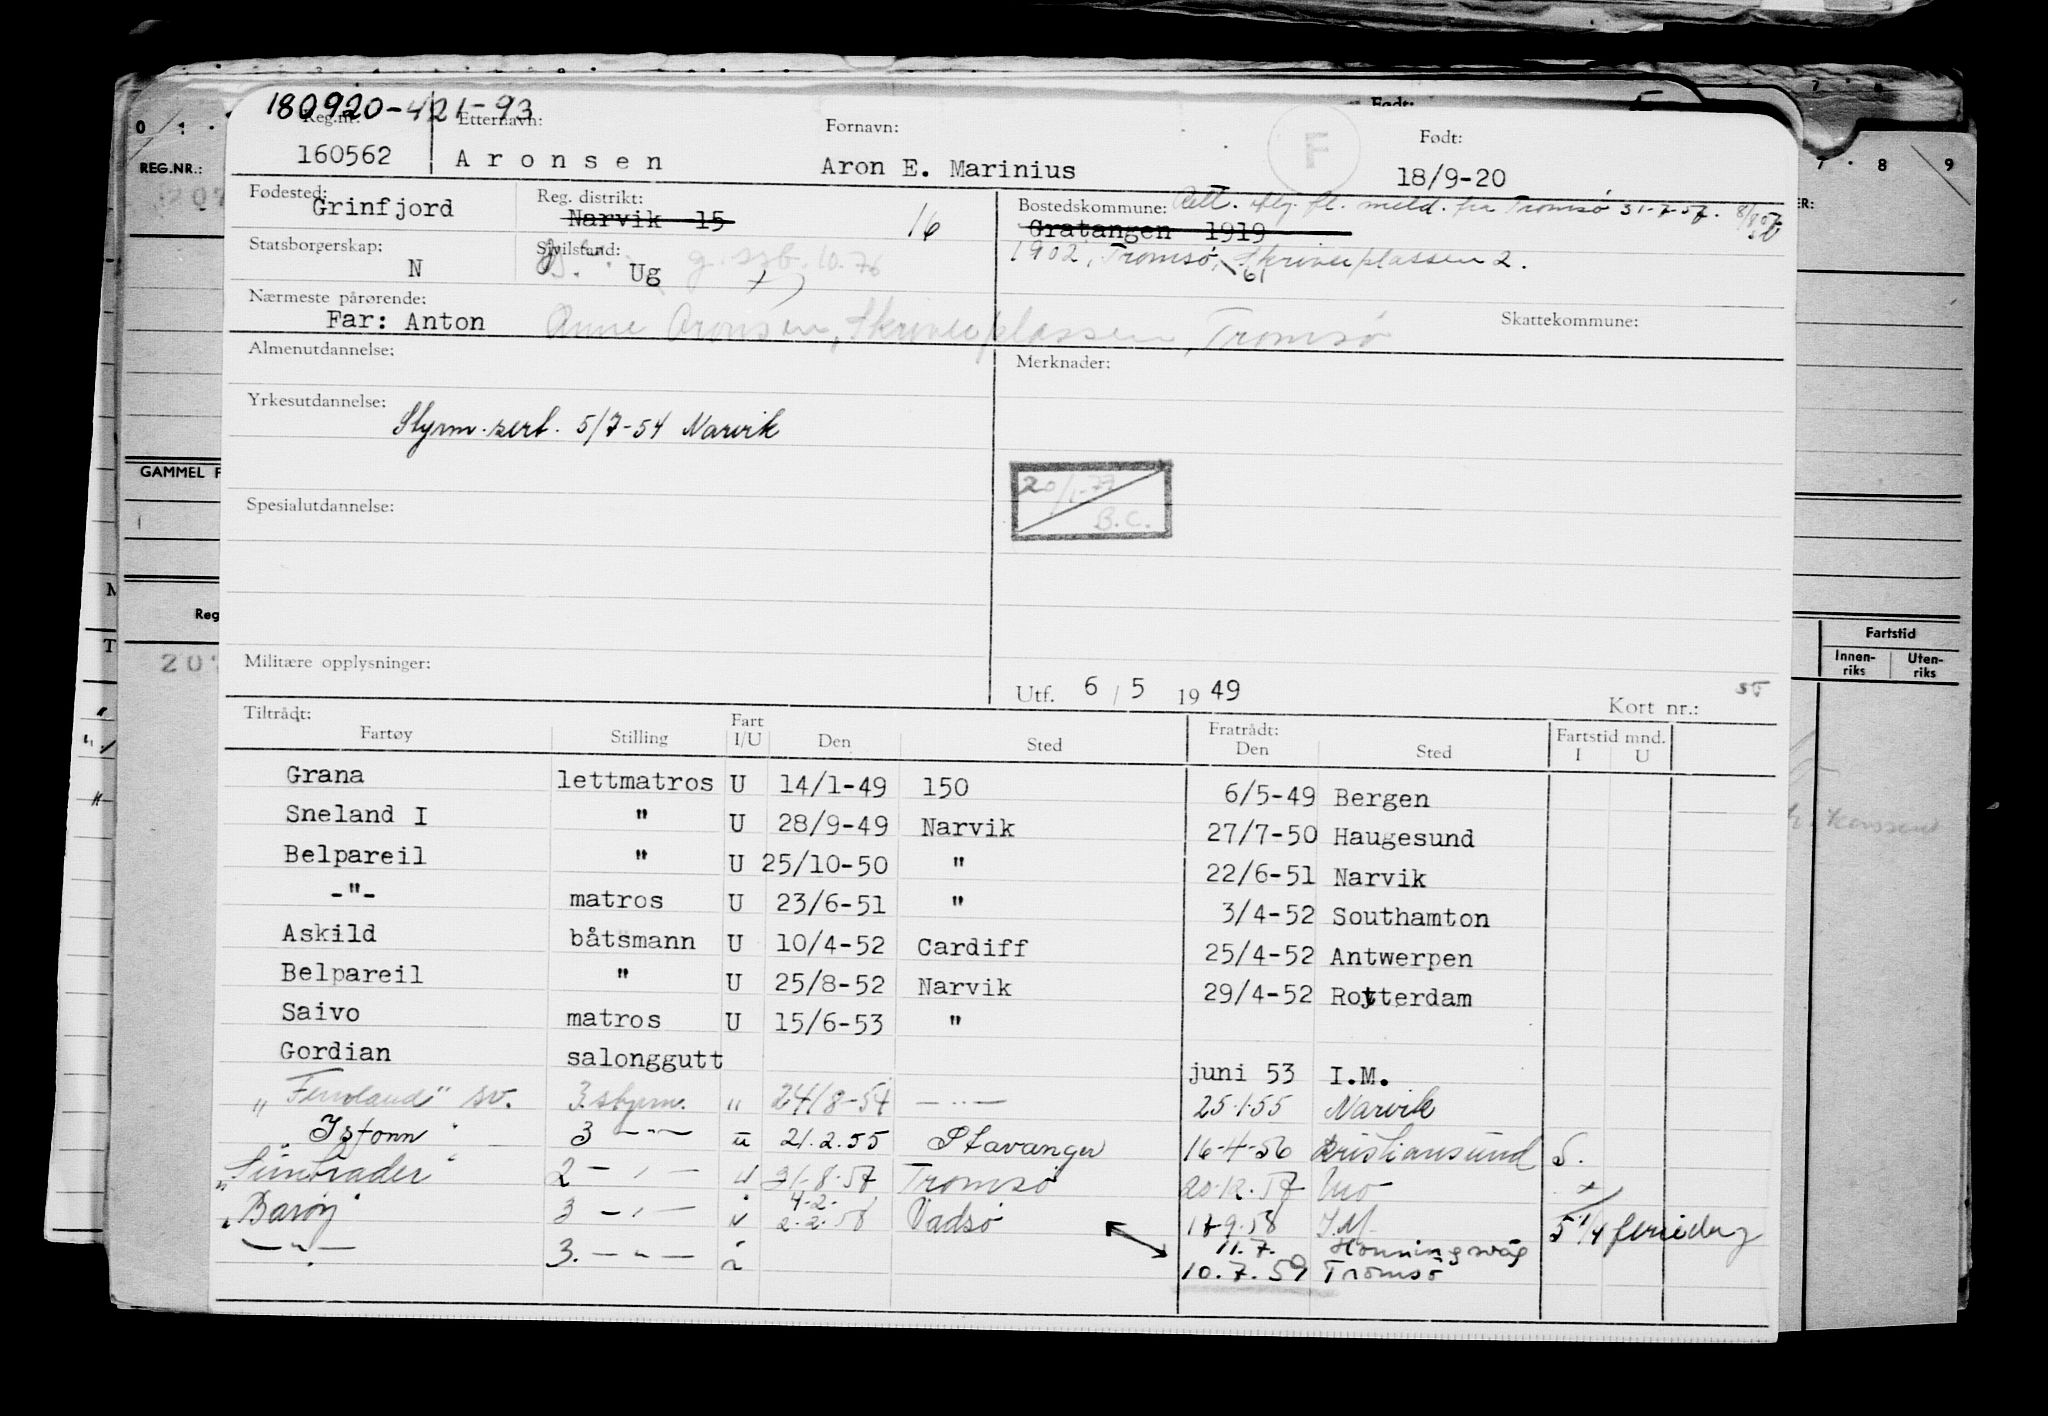 180920-421-93
Reg.nr.: Etternavn: Fornavn: Født:
160562 Aronsen Aron E. Marinius F 18/9-20
Fødested: Reg. distrikt: Bostedskommune: Att. flg. fl. meld. fra Tromsø 31-7-57.
Grinfjord Narvik 15 16 Gratangen 1919
Statsborgerskap: Sivilstand: 1902, Tromsø, Skriverplassen 2.
N Ug g. szb. 10.76 61
Nærmeste pårørende: Skattekommune:
Far: Anton Anne Aronsen, Skriverplassen, Tromsø
Almenutdannelse: Merknader:
Yrkesutdannelse:
Styrm.sert. 5/7-54 Narvik
20/1-77
B.C.
Spesialutdannelse:
Militære opplysninger:
Utf. 6 / 5 1949 Kort nr.:
Tiltrådt: Fart Fratrådt: Fartstid mnd.
Fartøy Stilling I/U Den Sted Den Sted I U
Grana lettmatros U 14/1-49 150 6/5-49 Bergen
Sneland I " U 28/9-49 Narvik 27/7-50 Haugesund
Belpareil " U 25/10-50 " 22/6-51 Narvik
-"- matros U 23/6-51 " 3/4-52 Southamton
Askild båtsmann U 10/4-52 Cardiff 25/4-52 Antwerpen
Belpareil " U 25/8-52 Narvik 29/4-52 Rotterdam
Saivo matros U 15/6-53 "
Gordian salonggutt juni 53 I.M.
"Fernland" sv. 3.styrm. " 24/8-54 -"- 25.1.55 Narvik
"Isfonn" 3 -"- u 21.2.55 Stavanger 16-4-56 Kristiansund S.
"Suntrader" 2 -"- u 31-8-57 Tromsø 20.12.57
4-2-
"Barøy" 3 -"- u 2.2.58 Vadsø 18-9.58 I.M. 5 1/4 feriedag
11.7. Honningsvåg
-"- 3. -"- " 10.7.59 Tromsø
REG.NR.:
GAMMEL F
Reg
Fartstid
Innen-
riks
Uten-
riks
7 8 9